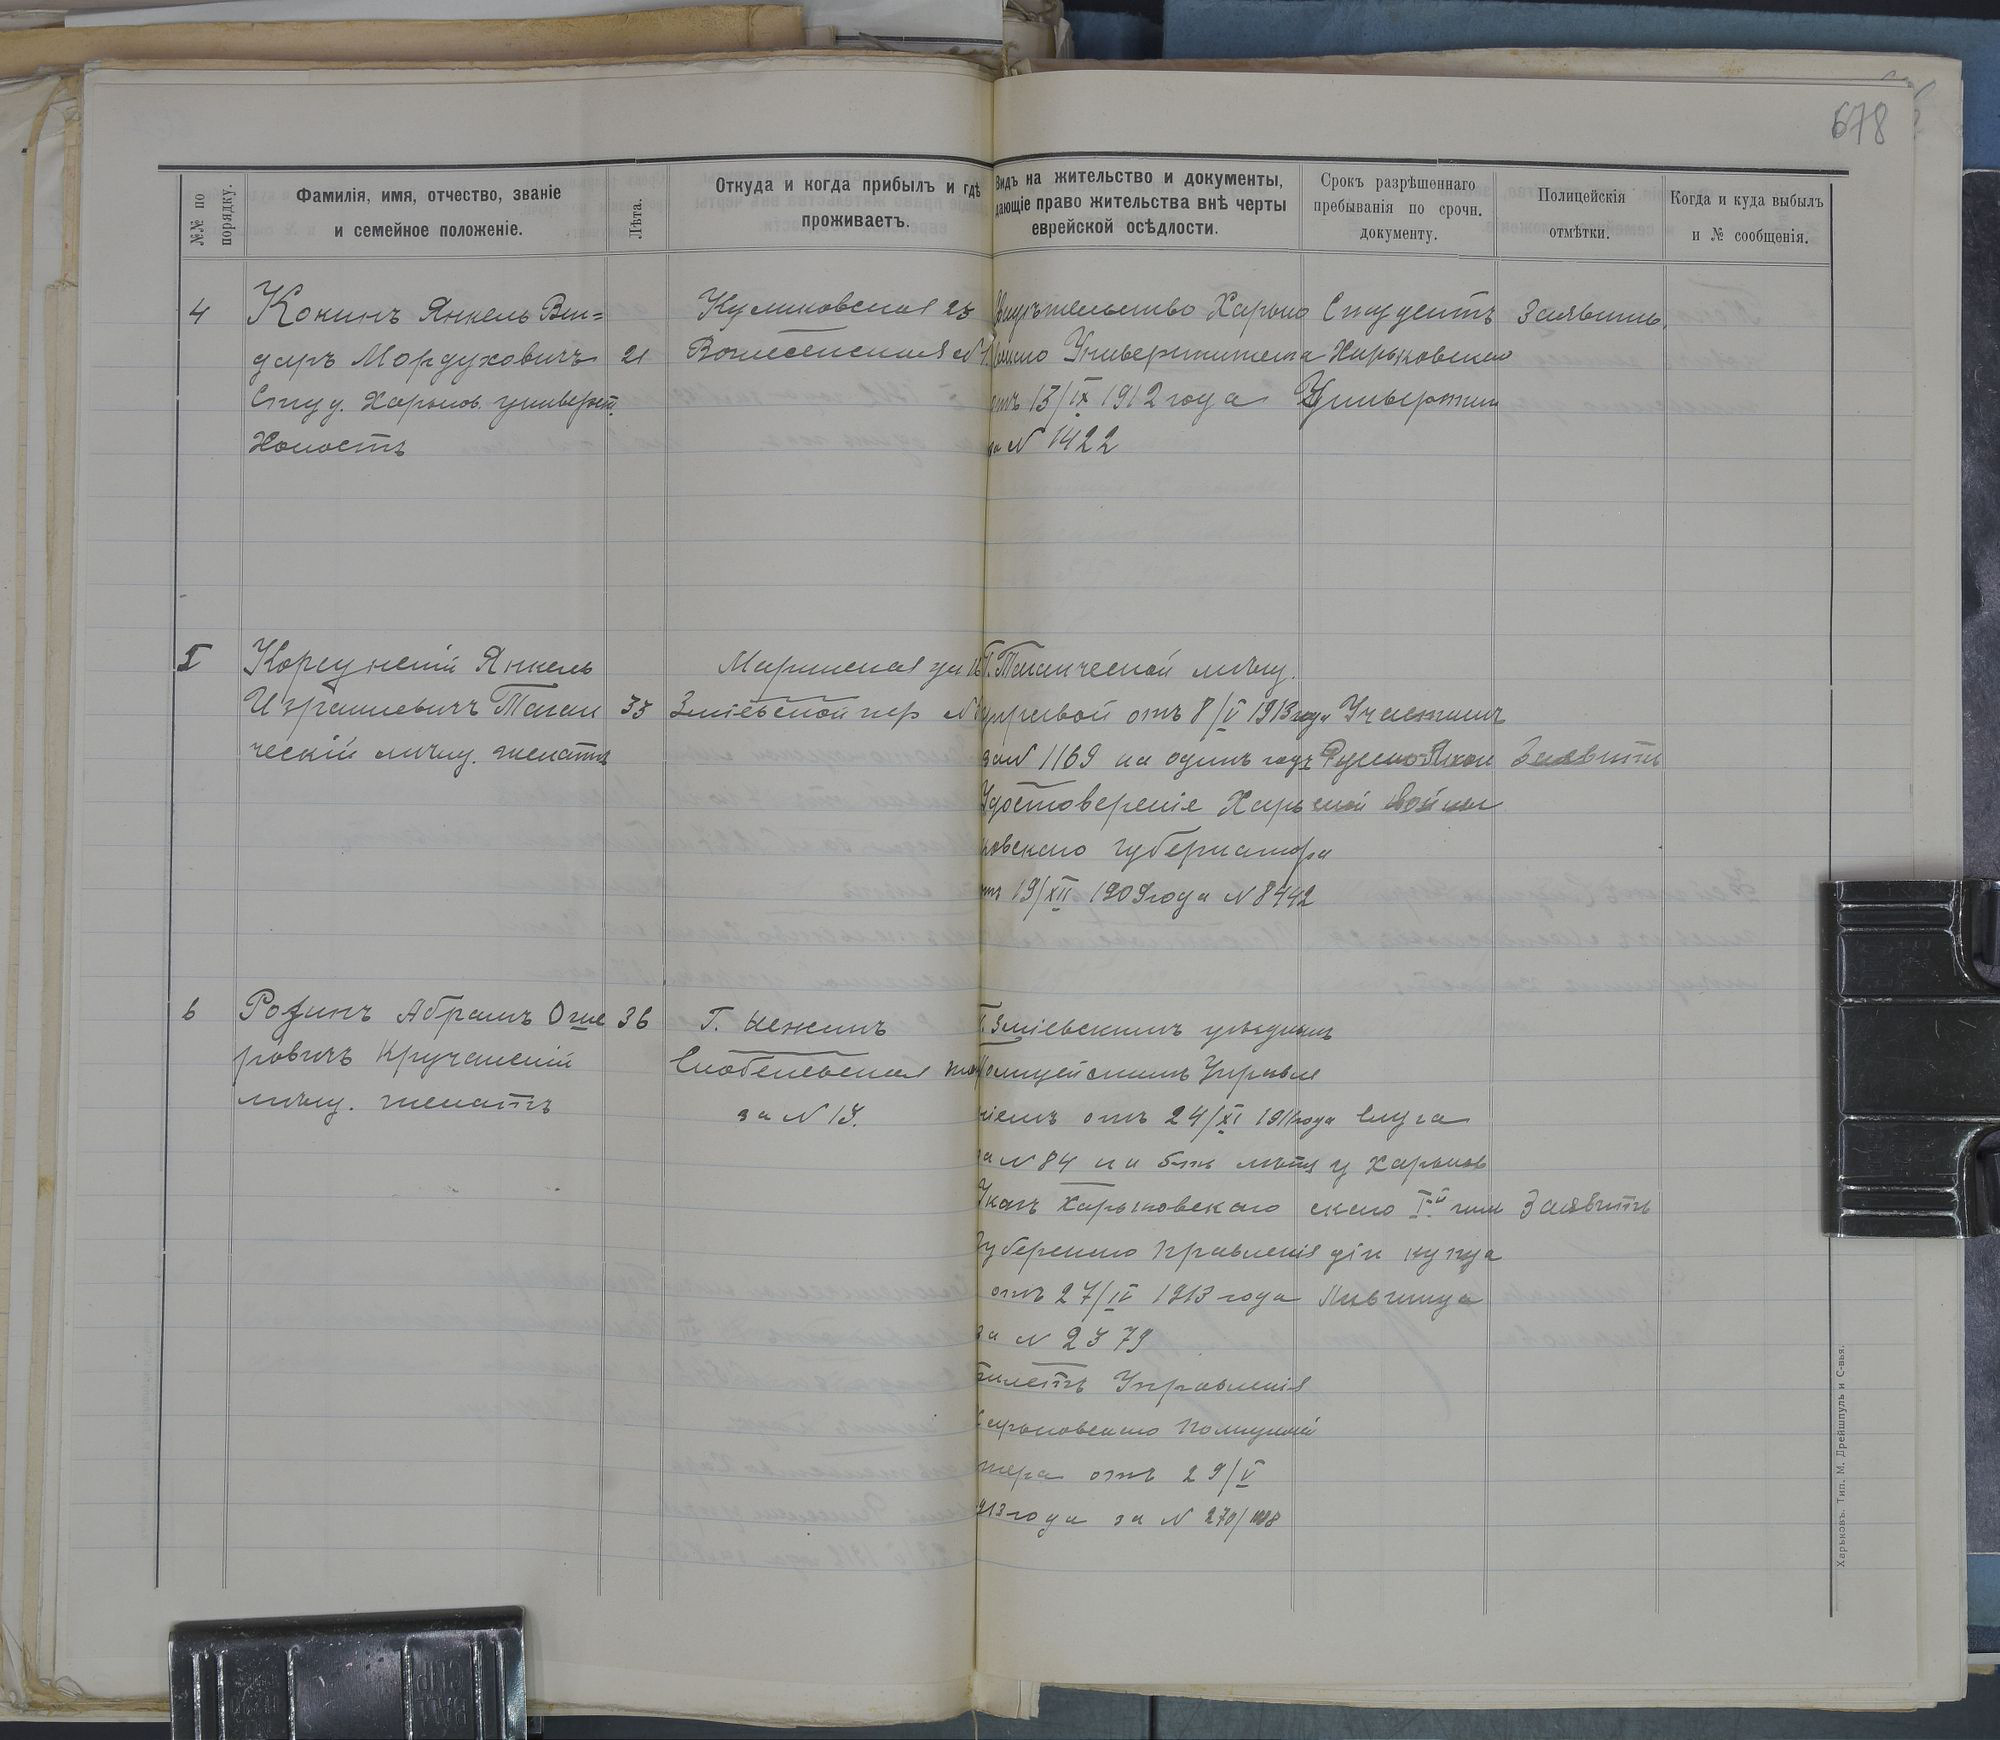 678
№№ по порядку.
Фамилія, имя, отчество, званіе
и семейное положеніе.
Лѣта.
Откуда и когда прибылъ и гдѣ
проживаетъ.
Видъ на жительство и документы,
дающіе право жительства внѣ черты
еврейской осѣдлости.
Срокъ разрѣшеннаго
пребыванія по срочн.
документу.
Полицейскія
отмѣтки.
Когда и куда выбылъ
и № сообщенія.
4
Кокинъ Янкель Вен=
даръ Мордуховичъ
Студ. Харьков. университ.
Холостъ
21
Куликовская 25
Вознесенская №
Свидѣтельство Харько
вскаго Университета
отъ 13/IX 1912 года
за № 1422
Студентъ
Харьковскаго
Университ
Заявить.
5
Корсунскій Янкель
Израилевичъ Таган
ческій мѣщ. женатъ
33
Маріинская ул
Зміевской пер №
Г. Таганческой мѣщ.
управой отъ 8/V 1913 года
за № 1169 на одинъ годъ
Удостовереніе Харь
ковскаго губернатора
отъ 19/XII 1909 года № 8442
Участникъ
Русско-Япон
ской войны
Заявить
6
Розинъ Абрамъ Оше
ровичъ Кручанскій
мѣщ. женатъ
36
Г. Нежинъ
Скобелевская
за № 13.
Зміевскимъ уѣзднымъ
Полицейскимъ Управле
ніемъ отъ 24/XI 1911 года
за № 84 на 5ть лѣтъ
Указъ Харьковскаго
Губернско Правленія
отъ 27/IV 1913 года
за № 2379
Билетъ Управленія
Харьковскаго Полицмей
стера отъ 29/V
1913 года за № 270/
Слуга
у Харьков
скаго Iй гил
діи купца
Заявить
Харьковъ. Тип. М. Дрейшпуль и С-вья.